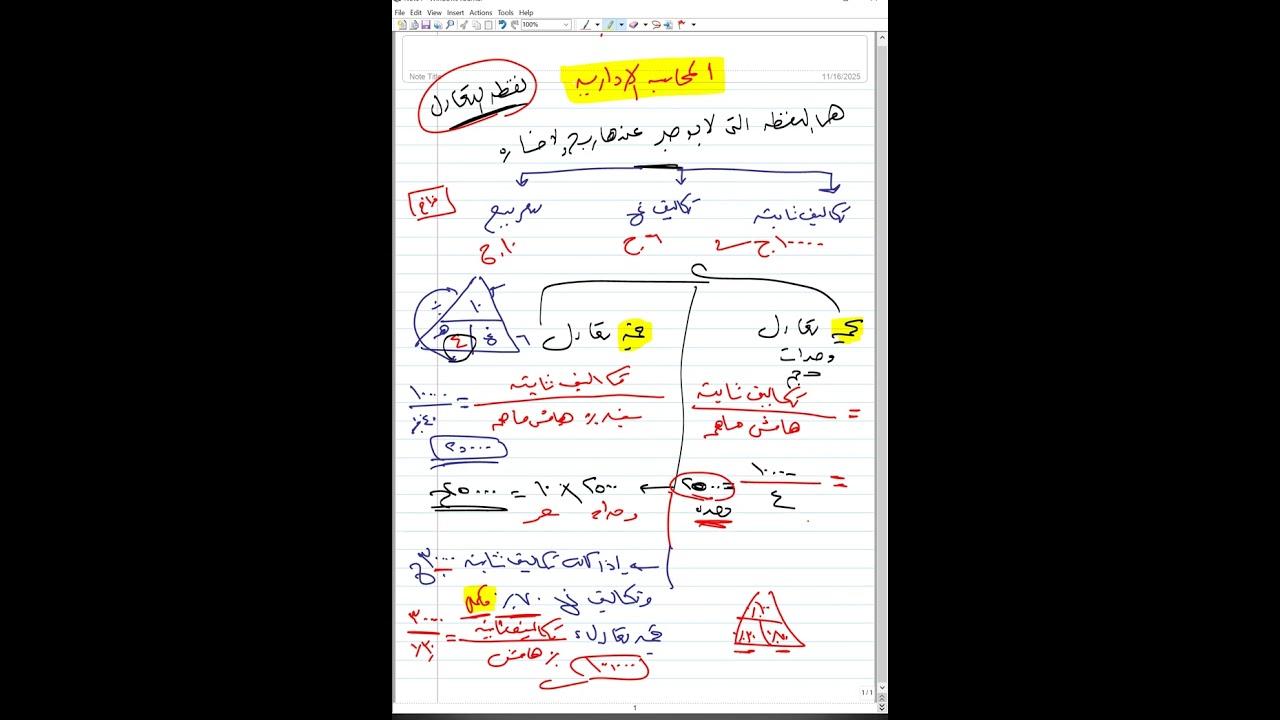 File Edit View Insert Actions Tools Help
100%
Note Title
11/16/2025
المحاسبه الإداريه
نقطه التعادل
هى النقطه التى لا يوجد عندها ربح ولا خساره
تكاليف ثابته
تكاليف غ
سعر بيع
١٠٠٠٠ ج
٦ ج
١٠ ج
كمية تعادل
وحدات
حجم
قيمة تعادل
١٠
÷
٤
غ
٦
= تكاليف ثابته / هامش مساهمه
تكاليف ثابته / نسبه ٪ هامش مساهمه = ١٠٠٠٠ / ٤٠٪
٢٥٠٠٠
= ١٠٠٠٠ / ٤ = ٢٥٠٠ وحده
← ٢٥٠٠ × ١٠ = ٢٥٠٠٠ ج
وحدات
سعر
← إذا كانت تكاليف ثابته ٣٠٠٠٠ ج
وتكاليف غ ٧٠٪
قيمه تعادل = تكاليف ثابته / ٪ هامش = ٣٠٠٠٠ / ٣٠٪
١٠٠٠٠٠
١٠٠٪
٣٠٪ ٧٠٪
1 / 1
1